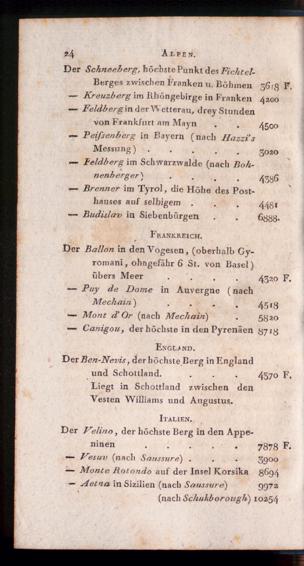 24 ALPEN.
Der Schneeberg, höchste Punkt des Fichtel-
Berges zwischen Franken u. Böhmen 3618 F.
— Kreuzberg im Rhöngebirge in Franken 4200
— Feldberg in der Wetterau, drey Stunden
von Frankfurt am Mayn . . 4500
— Peißenberg in Bayern (nach Hazzi's
Messung) . . . . . 3020
— Feldberg im Schwarzwalde (nach Boh-
nenberger) . . . . 4386
— Brenner im Tyrol, die Höhe des Post-
hauses auf selbigem . . . 4481
— Budislav in Siebenbürgen . . 6888.
FRANKREICH.
Der Ballon in den Vogesen, (oberhalb Gy-
romani, ohngefähr 6 St. von Basel)
übers Meer . . . . 4320 F.
— Puy de Dome in Auvergne (nach
Mechain) . . . . . 4518
— Mont d'Or (nach Mechain) . . 5820
— Canigou, der höchste in den Pyrenäen 8718
ENGLAND.
Der Ben-Nevis, der höchste Berg in England
und Schottland. . . . 4370 F.
Liegt in Schottland zwischen den
Vesten Williams und Augustus.
ITALIEN.
Der Velino, der höchste Berg in den Appe-
ninen . . . . . 7878 F.
— Vesuv (nach Saussure) . . . 3900
— Monte Rotondo auf der Insel Korsika 8694
— Aetna in Sizilien (nach Saussure) 9972
(nach Schukborough) 10254